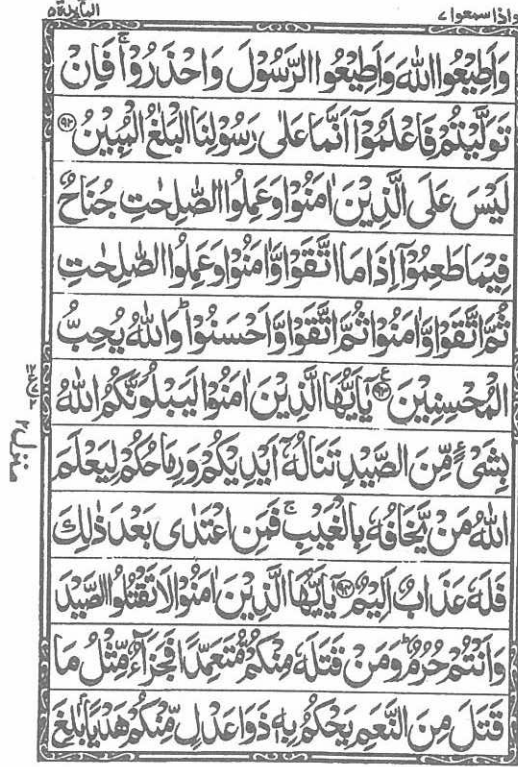 واذاسمعوا ٧ المآىِٕدة ٥
وَاَطِيْعُوا اللّٰهَ وَاَطِيْعُوا الرَّسُوْلَ وَاحْذَرُوْا ۚ فَاِنْ
تَوَلَّيْتُمْ فَاعْلَمُوْۤا اَنَّمَا عَلٰى رَسُوْلِنَا الْبَلٰغُ الْمُبِيْنُ ﴿۹۲﴾
لَيْسَ عَلَى الَّذِيْنَ اٰمَنُوْا وَعَمِلُوا الصّٰلِحٰتِ جُنَاحٌ
فِيْمَا طَعِمُوْۤا اِذَا مَا اتَّقَوْا وَّاٰمَنُوْا وَعَمِلُوا الصّٰلِحٰتِ
ثُمَّ اتَّقَوْا وَّاٰمَنُوْا ثُمَّ اتَّقَوْا وَّاَحْسَنُوْا ؕ وَاللّٰهُ يُحِبُّ
الْمُحْسِنِيْنَ ﴿۹۳﴾ ع يٰۤاَيُّهَا الَّذِيْنَ اٰمَنُوْا لَيَبْلُوَنَّكُمُ اللّٰهُ
بِشَیْءٍ مِّنَ الصَّيْدِ تَنَالُهٗۤ اَيْدِيْكُمْ وَرِمَاحُكُمْ لِيَعْلَمَ
اللّٰهُ مَنْ يَّخَافُهٗ بِالْغَيْبِ ۚ فَمَنِ اعْتَدٰى بَعْدَ ذٰلِكَ
فَلَهٗ عَذَابٌ اَلِيْمٌ ﴿۹۴﴾ يٰۤاَيُّهَا الَّذِيْنَ اٰمَنُوْا لَا تَقْتُلُوا الصَّيْدَ
وَاَنْتُمْ حُرُمٌ ؕ وَمَنْ قَتَلَهٗ مِنْكُمْ مُّتَعَمِّدًا فَجَزَآءٌ مِّثْلُ مَا
قَتَلَ مِنَ النَّعَمِ يَحْكُمُ بِهٖ ذَوَا عَدْلٍ مِّنْكُمْ هَدْيًۢا بٰلِغَ
منزل ۲